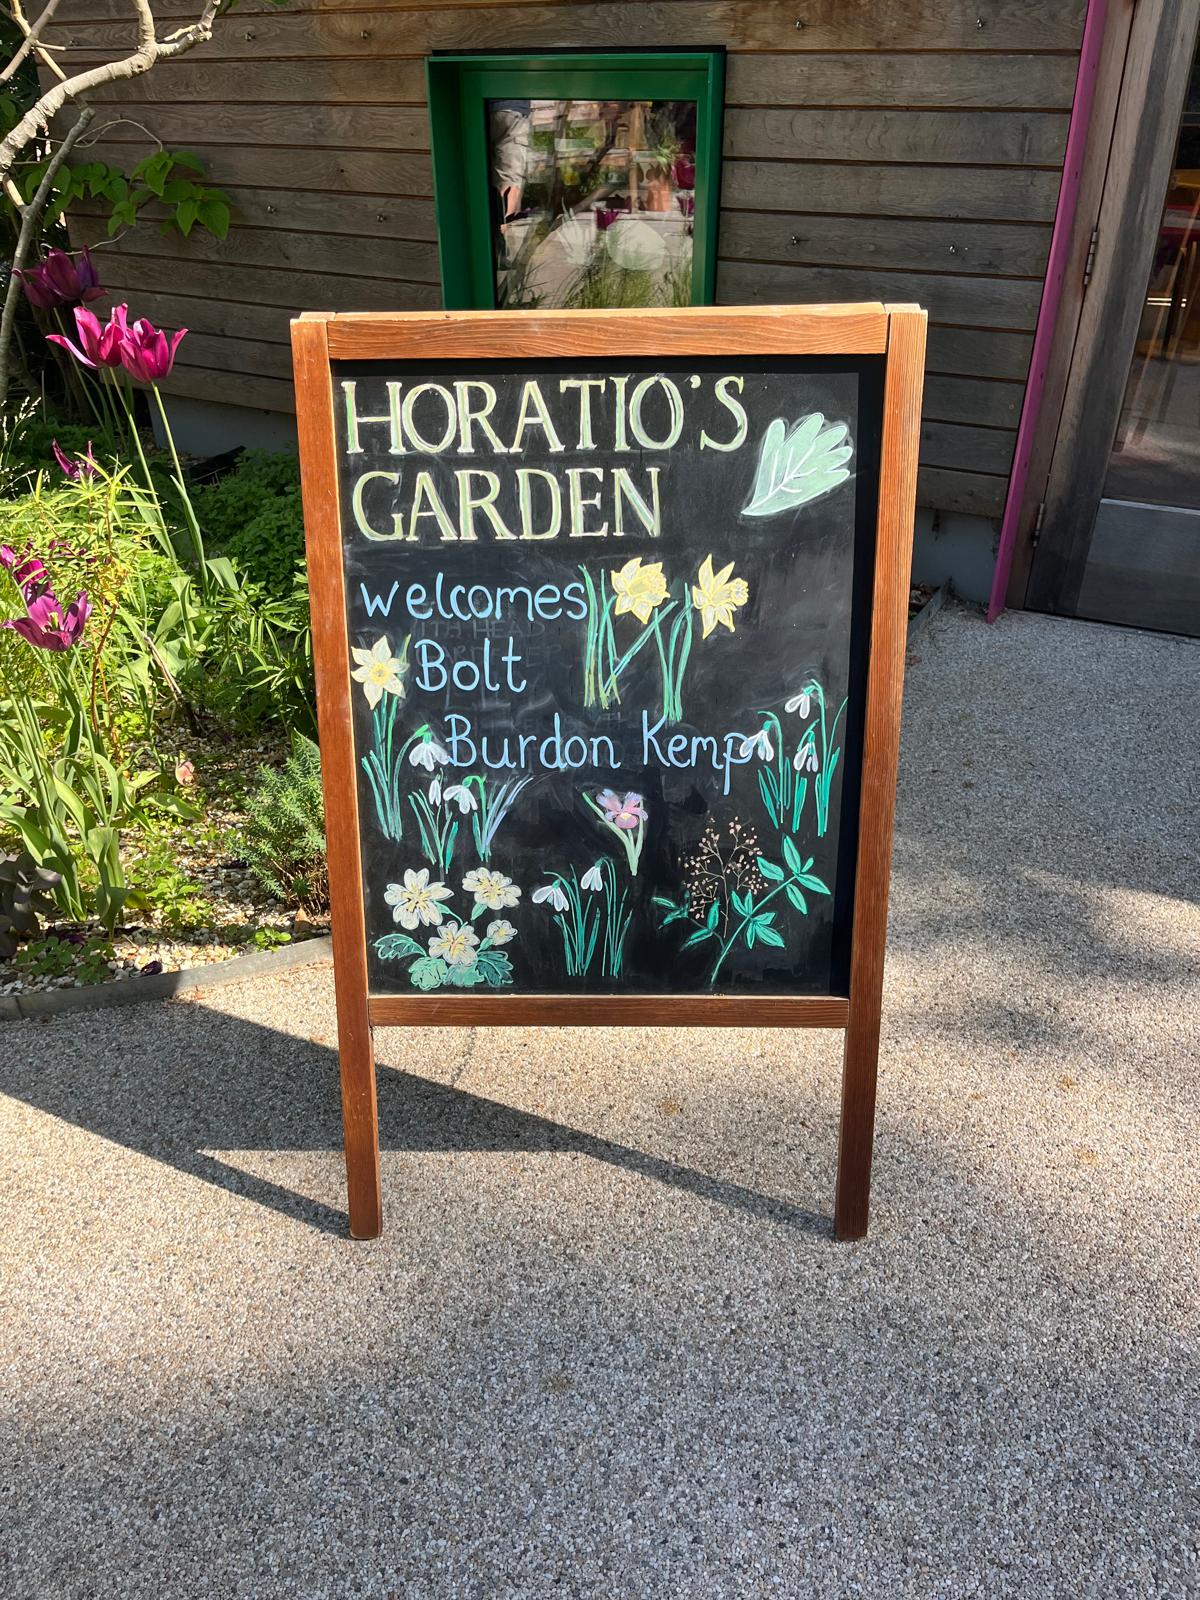 HORATIO'S
GARDEN
welcomes
Bolt
Burdon Kemp